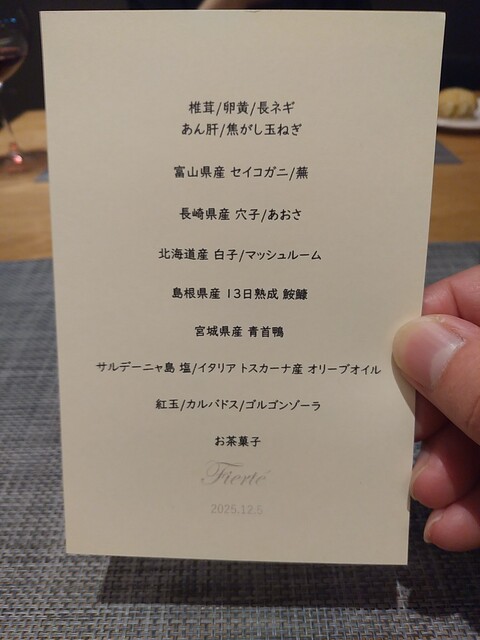 椎茸/卵黄/長ネギ
あん肝/焦がし玉ねぎ
富山県産 セイコガニ/蕪
長崎県産 穴子/あおさ
北海道産 白子/マッシュルーム
島根県産 13日熟成 鮟鱇
宮城県産 青首鴨
サルデーニャ島 塩/イタリア トスカーナ産 オリーブオイル
紅玉/カルバドス/ゴルゴンゾーラ
お茶菓子
Fierté
2025.12.5